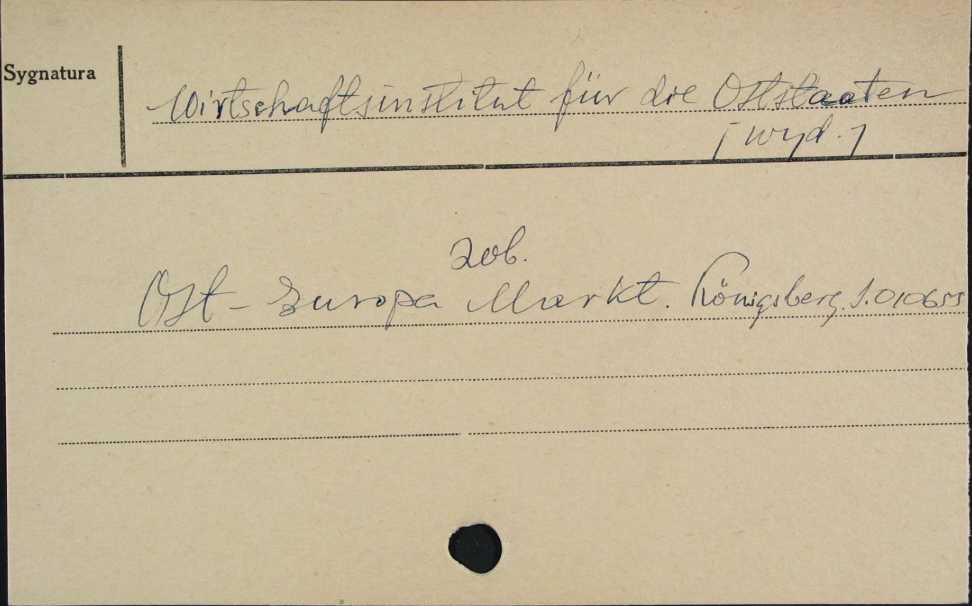 Sygnatura
Wirtschaftsinstitut für die Oststaaten
[wyd.]
zob.
Ost-Europa Markt. Königsberg. S.010655